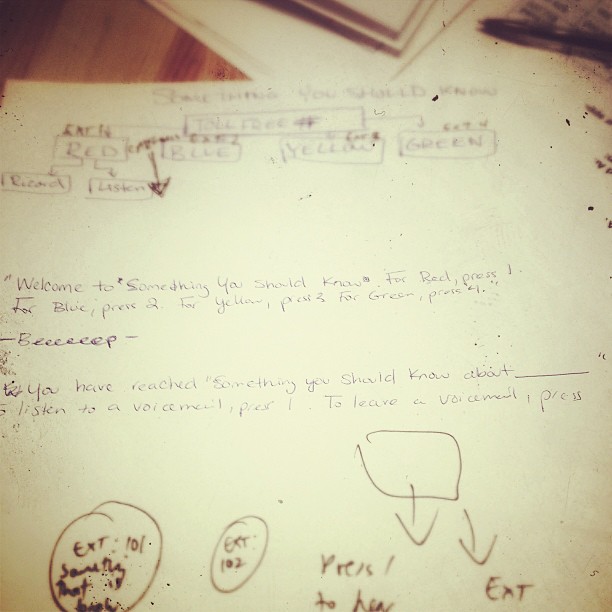 SOMETHING YOU SHOULD KNOW
TOLL FREE #
EXT 2 EXT. 4
RED BLUE YELLOW GREEN
Record Listen
"Welcome to "Something You Should Know". For Red, press 1.
For Blue, press 2. For Yellow, press 3 For Green, press 4."
-Beeeeeep-
You have reached "Something you should know about ________"
listen to a voicemail, press 1. To leave a voicemail, press
EXT: 101
EXT: 102
Something
that is
Press 1
to hear
EXT